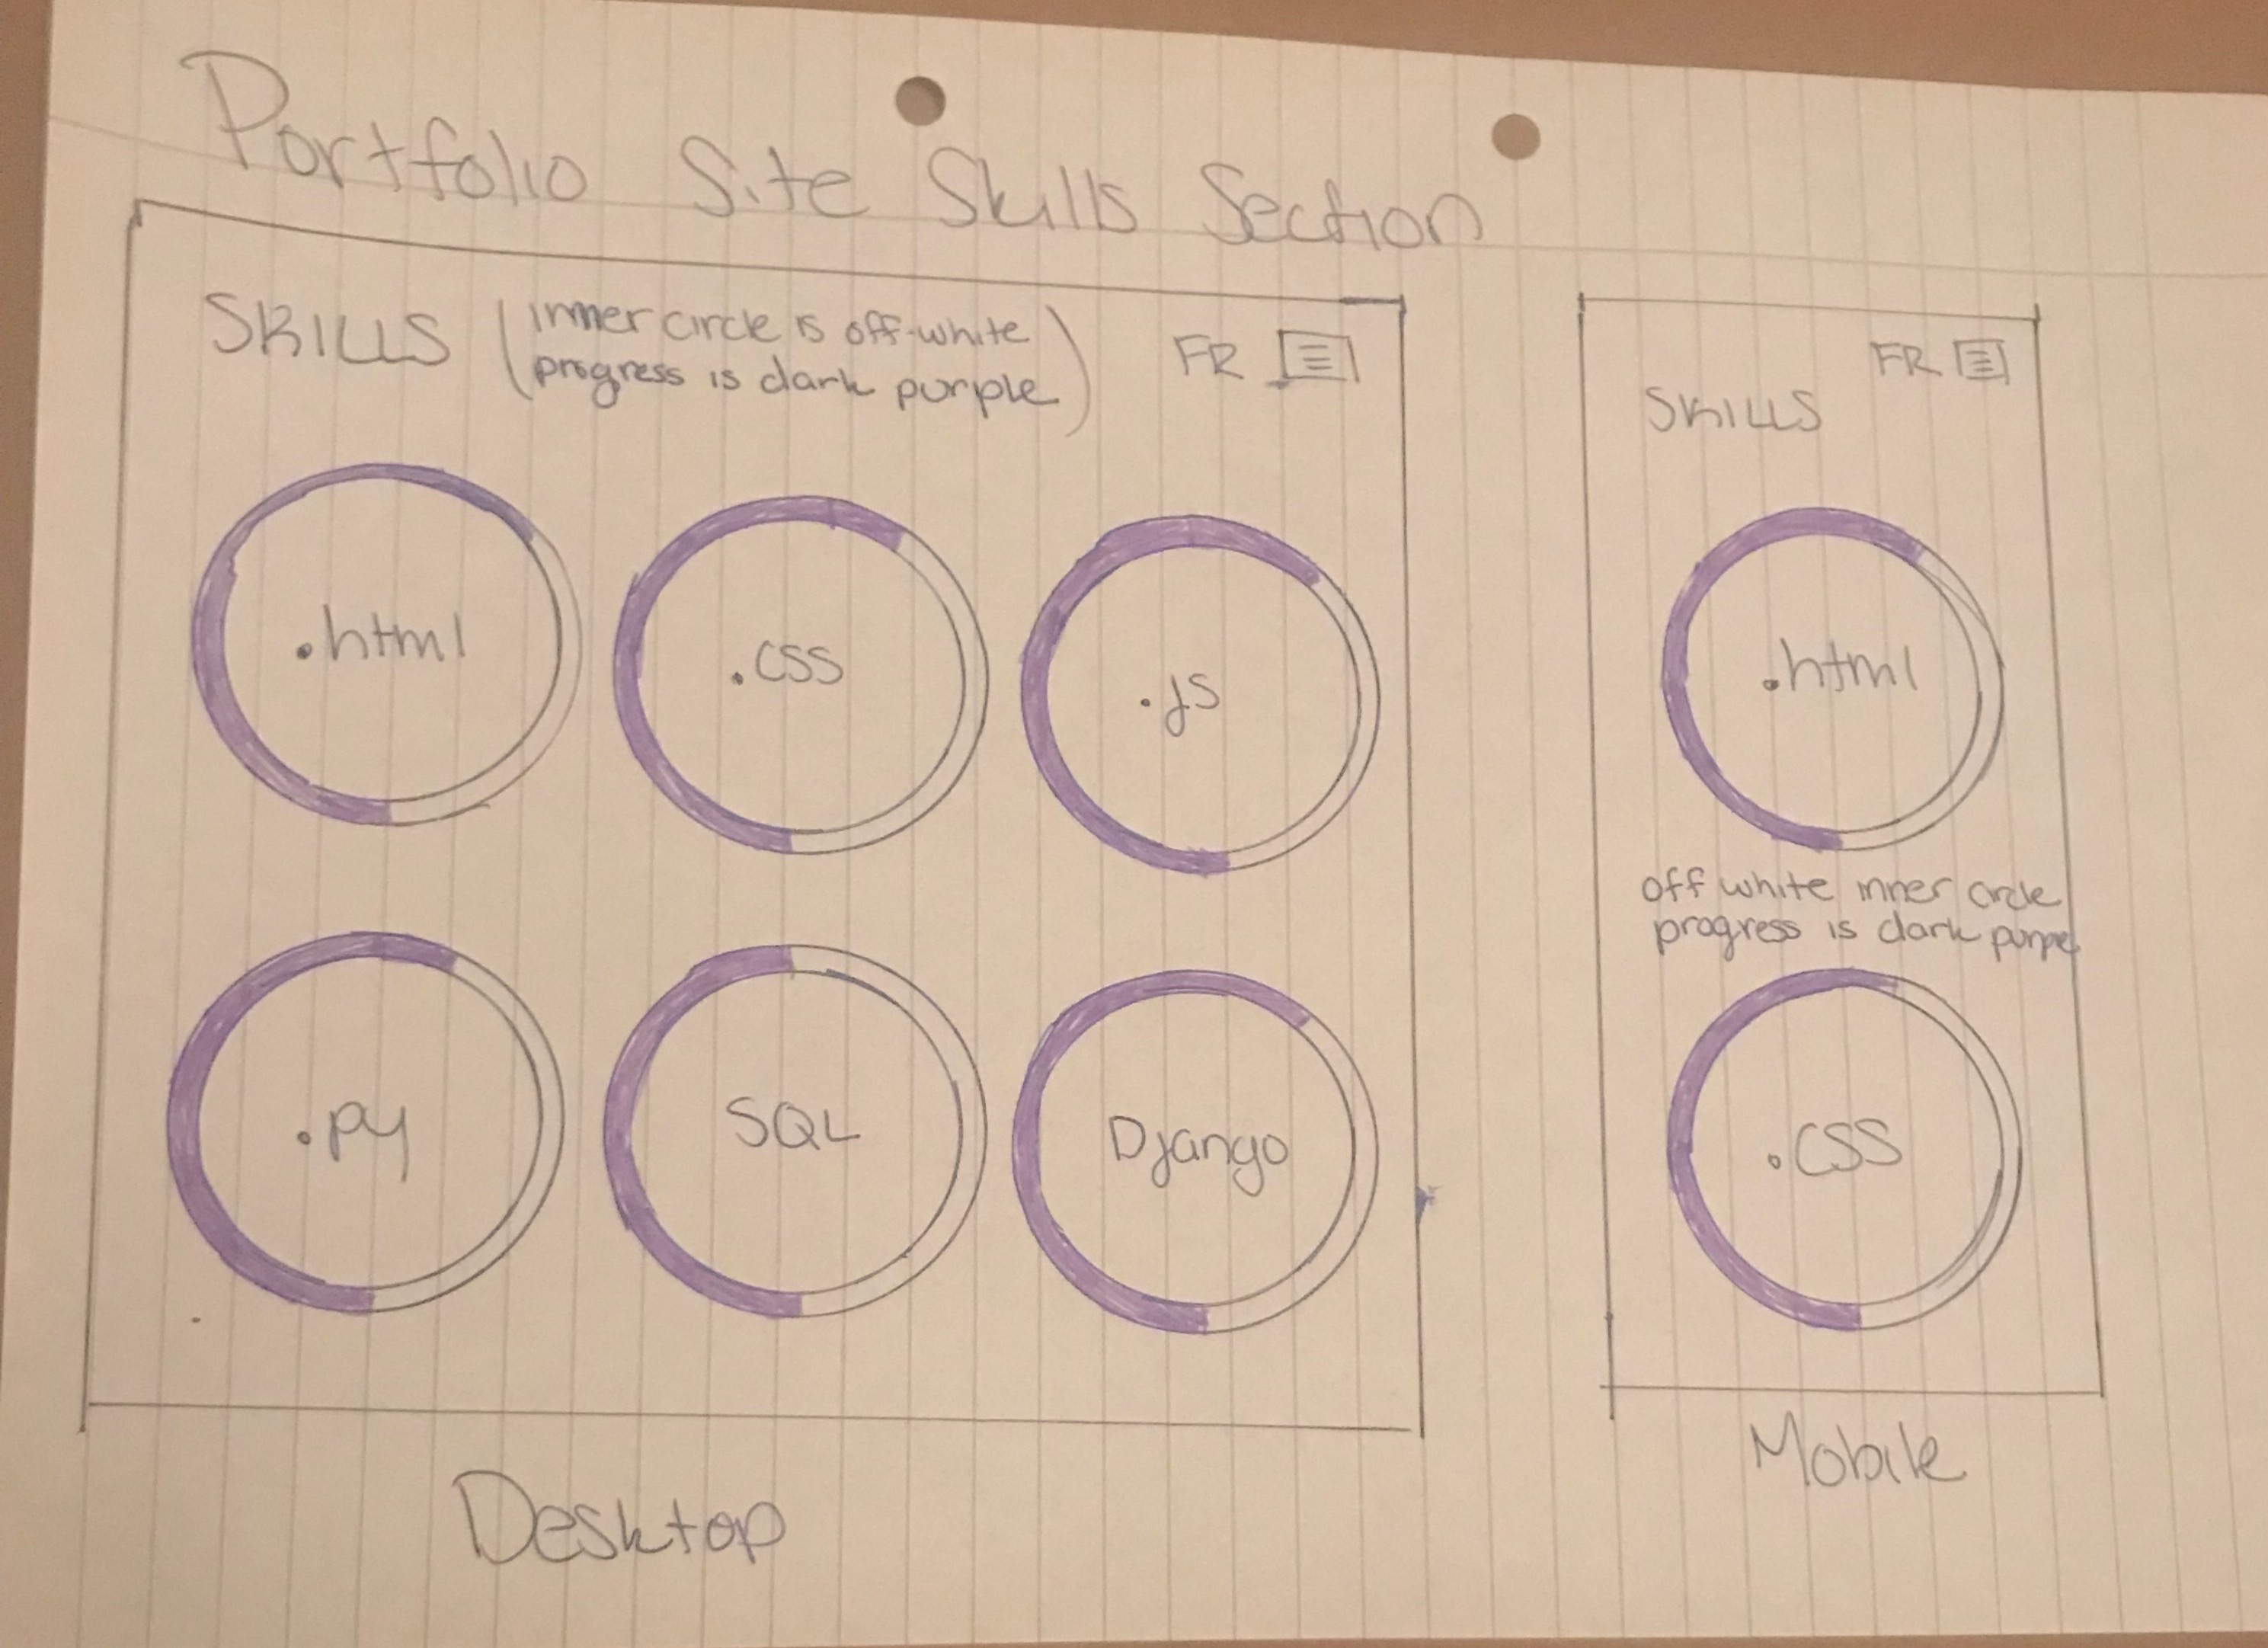 Portfolio Site Skills Section
SKILLS (inner circle is off-white
progress is dark purple)
FR
.html
.css
.js
.py
SQL
Django
Desktop
FR
SKILLS
.html
off white inner circle
progress is dark purple
.CSS
Mobile